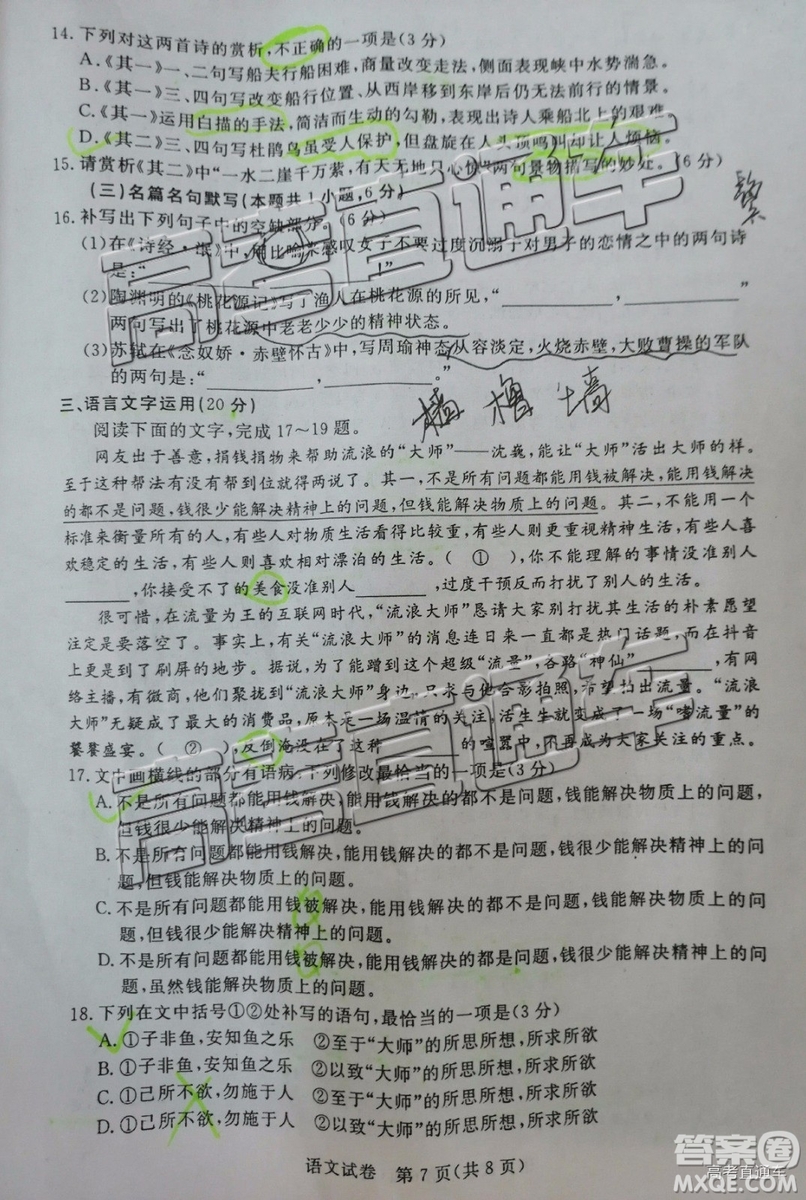 14. 下列对这两首诗的赏析,不正确的一项是(3分)
A.《其一》一、二句写船夫行船困难,商量改变走法,侧面表现峡中水势湍急。
B.《其一》三、四句写改变船行位置、从西岸移到东岸后仍无法前行的情景。
C.《其一》运用白描的手法,简洁而生动的勾勒,表现出诗人乘船北上的艰难。
D.《其二》三、四句写杜鹃鸟虽受人保护,但盘旋在人头顶鸣叫却让人烦恼。
15. 请赏析《其二》中“一水二崖千万萦,有天无地只心惊”两句景物描写的妙处。(6分)
(三)名篇名句默写(本题共1小题,6分)
16. 补写出下列句子中的空缺部分。(6分)
(1)在《诗经·氓》中,用比喻来感叹女子不要过度沉溺于对男子的恋情之中的两句诗
是:“
!”
(2)陶渊明的《桃花源记》写了渔人在桃花源的所见,“________,________”
两句写出了桃花源中老老少少的精神状态。
(3)苏轼在《念奴娇·赤壁怀古》中,写周瑜神态从容淡定,火烧赤壁,大败曹操的军队
的两句是:“________,________”
橘 橹 墙
三、语言文字运用(20分)
阅读下面的文字,完成17~19题。
网友出于善意,捐钱捐物来帮助流浪的“大师”——沈巍,能让“大师”活出大师的样。
至于这种帮法有没有帮到位就得两说了。其一,不是所有问题都能用钱被解决,能用钱解决
的都不是问题,钱很少能解决精神上的问题,但钱能解决物质上的问题。其二,不能用一个
标准来衡量所有的人,有些人对物质生活看得比较重,有些人则更重视精神生活,有些人喜
欢稳定的生活,有些人则喜欢相对漂泊的生活。( ① ),你不能理解的事情没准别人
________,你接受不了的美食没准别人________,过度干预反而打扰了别人的生活。
很可惜,在流量为王的互联网时代,“流浪大师”恳请大家别打扰其生活的朴素愿望
注定是要落空了。事实上,有关“流浪大师”的消息连日来一直都是热门话题,而在抖音
上更是到了刷屏的地步。据说,为了能蹭到这个超级“流量”,各路“神仙”________,有网
络主播,有微商,他们聚拢到“流浪大师”身边,只求与他合影拍照,希望拍出流量。“流浪
大师”无疑成了最大的消费品,原本是一场温情的关注,活生生就变成了一场“噬流量”的
饕餮盛宴。( ② ),反倒淹没在了这种________的喧嚣中,不再成为大家关注的重点。
17. 文中画横线的部分有语病,下列修改最恰当的一项是(3分)
A. 不是所有问题都能用钱解决,能用钱解决的都不是问题,钱能解决物质上的问题,
但钱很少能解决精神上的问题。
B. 不是所有问题都能用钱解决,能用钱解决的都不是问题,钱很少能解决精神上的问题,
但钱能解决物质上的问题。
C. 不是所有问题都能用钱被解决,能用钱解决的都不是问题,钱能解决物质上的问
题,但钱很少能解决精神上的问题。
D. 不是所有问题都能用钱被解决,能用钱解决的都不是问题,钱很少能解决精神上的问
题,虽然钱能解决物质上的问题。
18. 下列在文中括号①②处补写的语句,最恰当的一项是(3分)
A. ①子非鱼,安知鱼之乐 ②至于“大师”的所思所想,所求所欲
B. ①子非鱼,安知鱼之乐 ②以致“大师”的所思所想,所求所欲
C. ①己所不欲,勿施于人 ②至于“大师”的所思所想,所求所欲
D. ①己所不欲,勿施于人 ②以致“大师”的所思所想,所求所欲
语文试卷 第7页(共8页)
高考直通车
高考直通车
答案圈
高考直通车
MXQE.COM